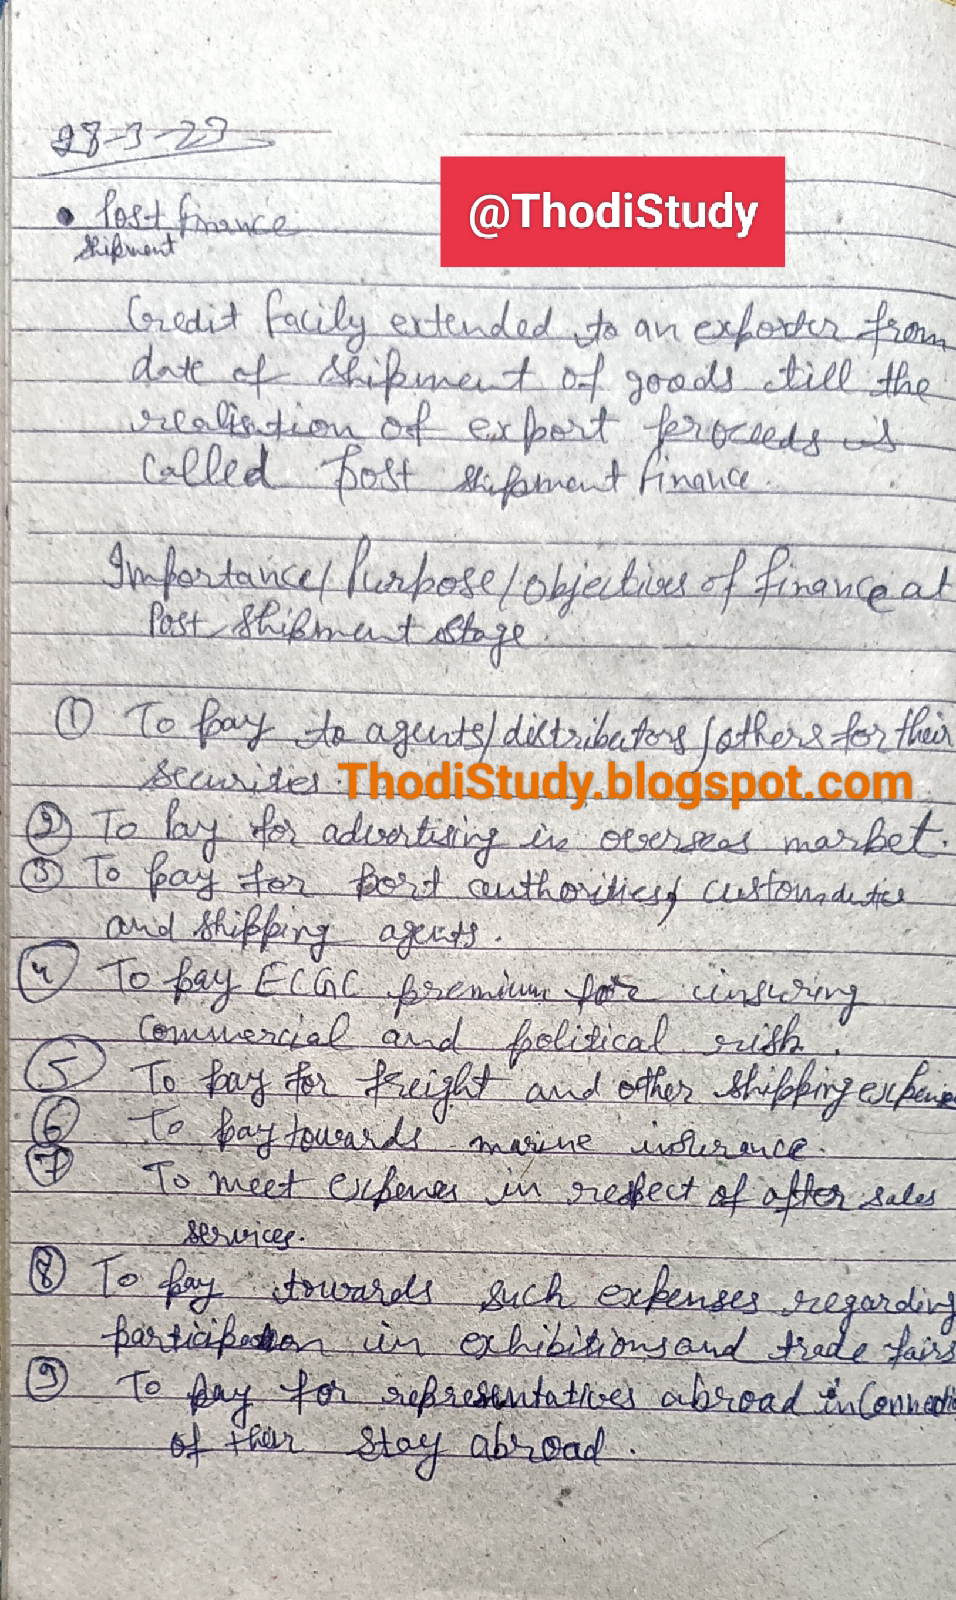 28-3-23
@ThodiStudy
• Post finance
Shipment
Credit facily extended to an exporter from
date of shipment of goods till the
realisation of export proceeds is
called post shipment finance.
Importance/Purpose/objectives of finance at
Post shipment stage.
① To pay to agents/distributors/others for their
securities.
ThodiStudy.blogspot.com
② To Pay for advertising in overseas market.
③ To pay for port authorities, custom duties
and shipping agents.
④ To pay ECGC premium for insuring
commercial and political risk.
⑤ To pay for freight and other shipping expense
⑥ To pay towards marine insurance.
⑦ To meet expenses in respect of after sales
services.
⑧ To pay towards such expenses regarding
participation in exhibitions and trade fairs
⑨ To pay for representatives abroad in Connectio
of their stay abroad.